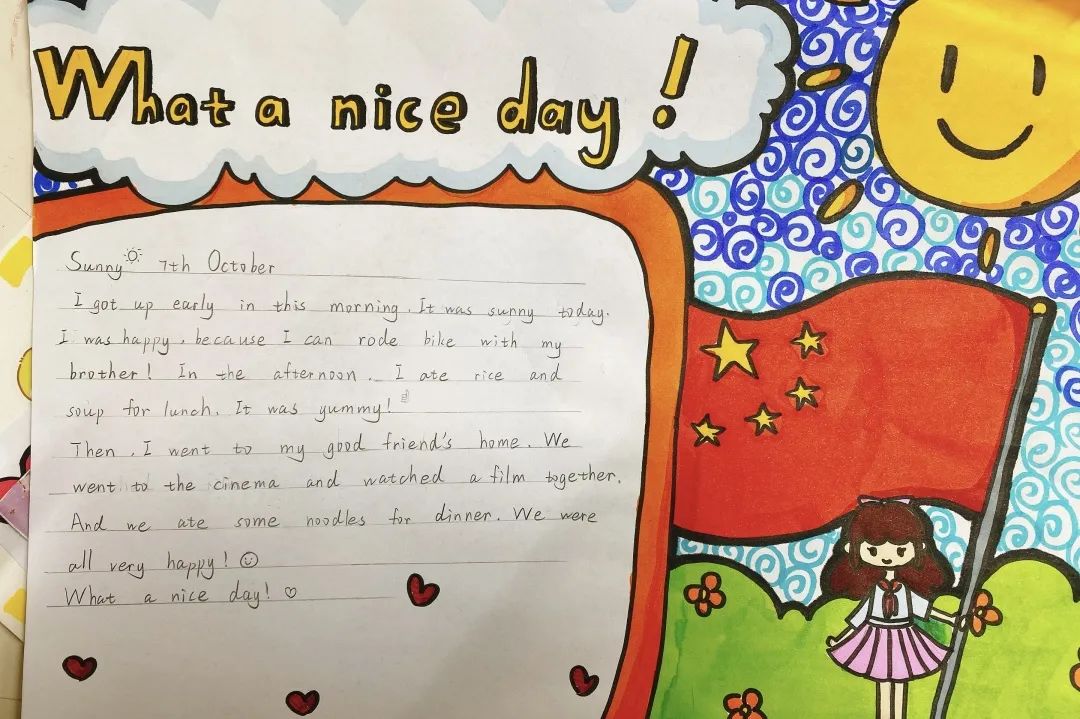 What a nice day!
Sunny 7th October
I got up early in this morning. It was sunny today.
I was happy, because I can rode bike with my
brother! In the afternoon. I ate rice and
soup for lunch. It was yummy!
Then, I went to my good friend's home. We
went to the cinema and watched a film together.
And we ate some noodles for dinner. We were
all very happy!
What a nice day!